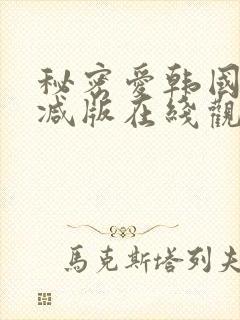 秘密愛韓國
減版在綫觀
馬克斯塔列夫